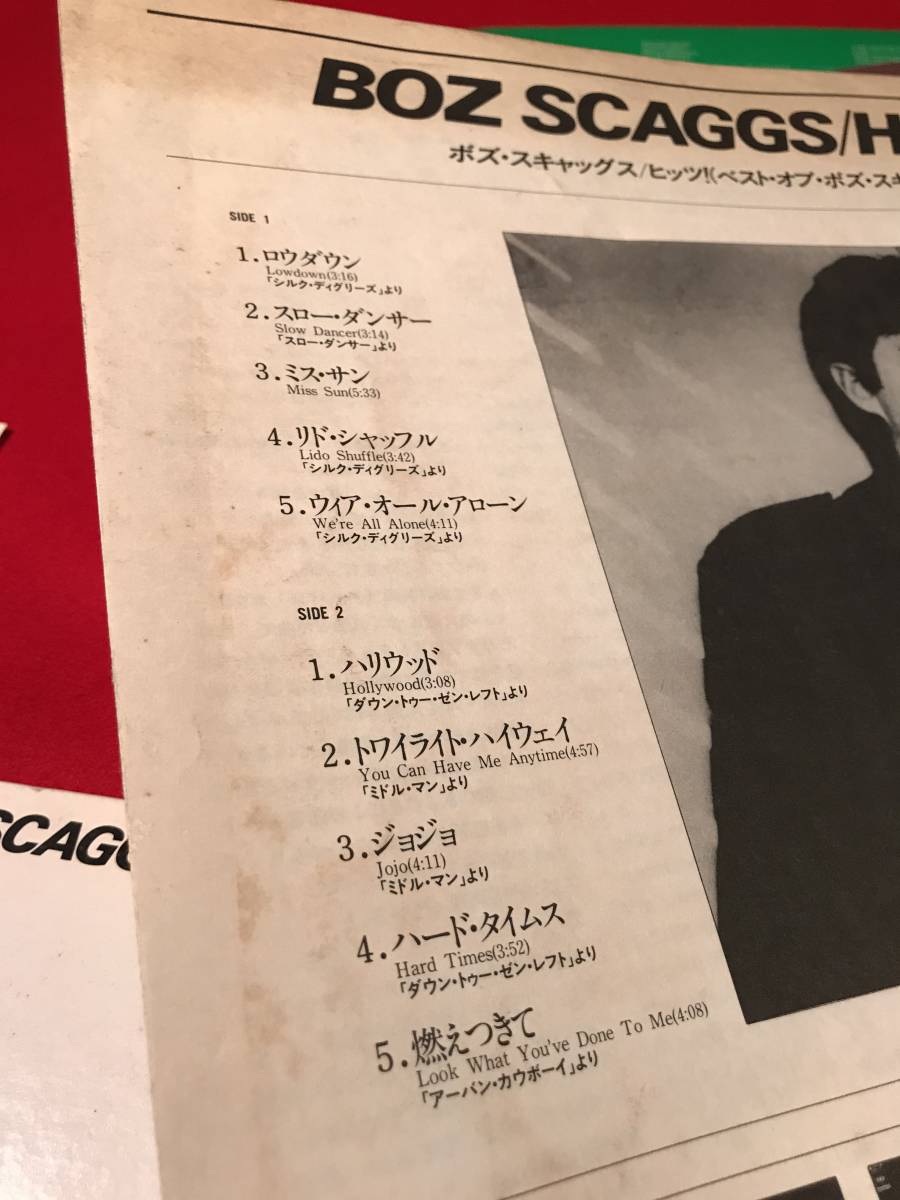 BOZ SCAGGS/H
ボズ・スキャッグス/ヒッツ!(ベスト・オブ・ボズ・スキ
SIDE 1
1.ロウダウン
Lowdown(3:16)
「シルク・ディグリーズ」より
2.スロー・ダンサー
Slow Dancer(3:14)
「スロー・ダンサー」より
3.ミス・サン
Miss Sun(5:33)
4.リド・シャッフル
Lido Shuffle(3:42)
「シルク・ディグリーズ」より
5.ウィア・オール・アローン
We're All Alone(4:11)
「シルク・ディグリーズ」より
SIDE 2
1.ハリウッド
Hollywood(3:08)
「ダウン・トゥー・ゼン・レフト」より
2.トワイライト・ハイウェイ
You Can Have Me Anytime(4:57)
「ミドル・マン」より
3.ジョジョ
Jojo(4:11)
「ミドル・マン」より
4.ハード・タイムス
Hard Times(3:52)
「ダウン・トゥー・ゼン・レフト」より
5.燃えつきて
Look What You've Done To Me(4:08)
「アーバン・カウボーイ」より
SCAGG